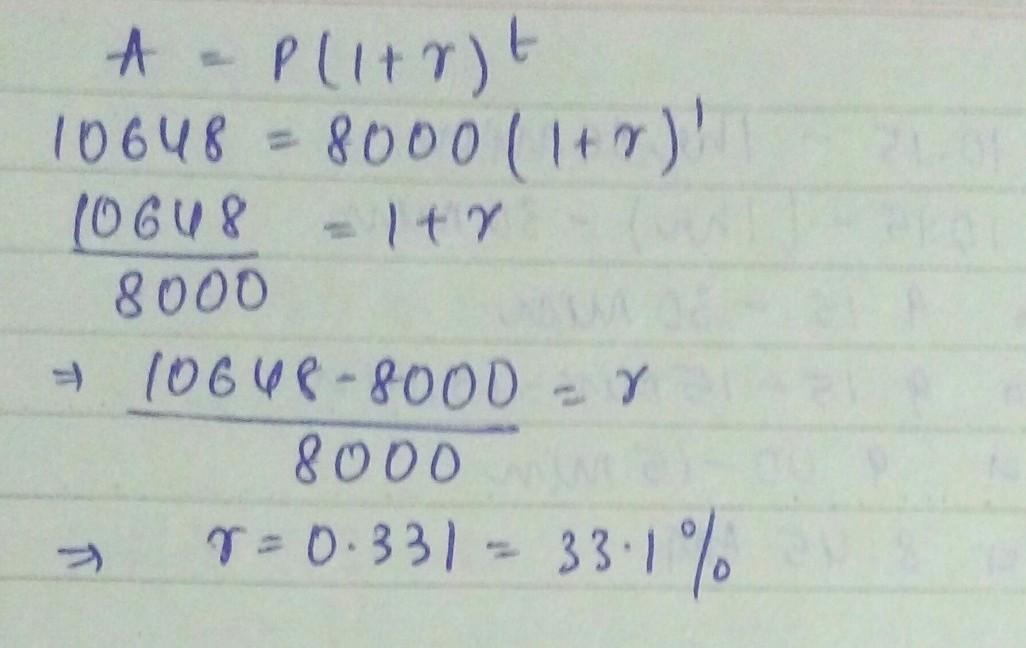 A = P(1+r)^t
10648 = 8000(1+r)^1
10648/8000 = 1+r
⇒ (10648-8000)/8000 = r
⇒ r = 0.331 = 33.1%